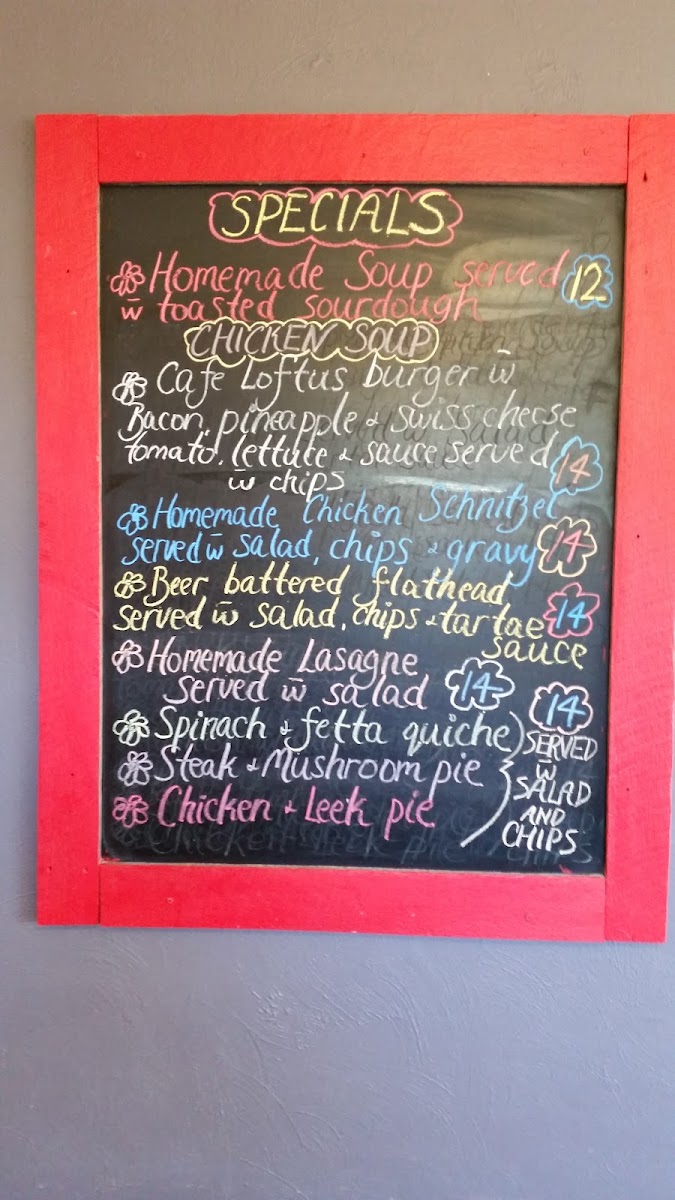 SPECIALS
Homemade Soup served 12
w̄ toasted sourdough
CHICKEN SOUP
Cafe Loftus burger w̄
Bacon, pineapple & swiss cheese
tomato, lettuce & sauce served 14
w̄ chips
Homemade Chicken Schnitzel
served w̄ salad, chips & gravy 14
Beer battered flathead
served w̄ salad, chips & tartae 14
sauce
Homemade Lasagne
served w̄ salad 14
14
Spinach & fetta quiche
SERVED
Steak & Mushroom pie
w̄
SALAD
Chicken & Leek pie
AND
CHIPS